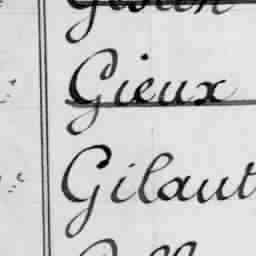 Gieux
Gilaut